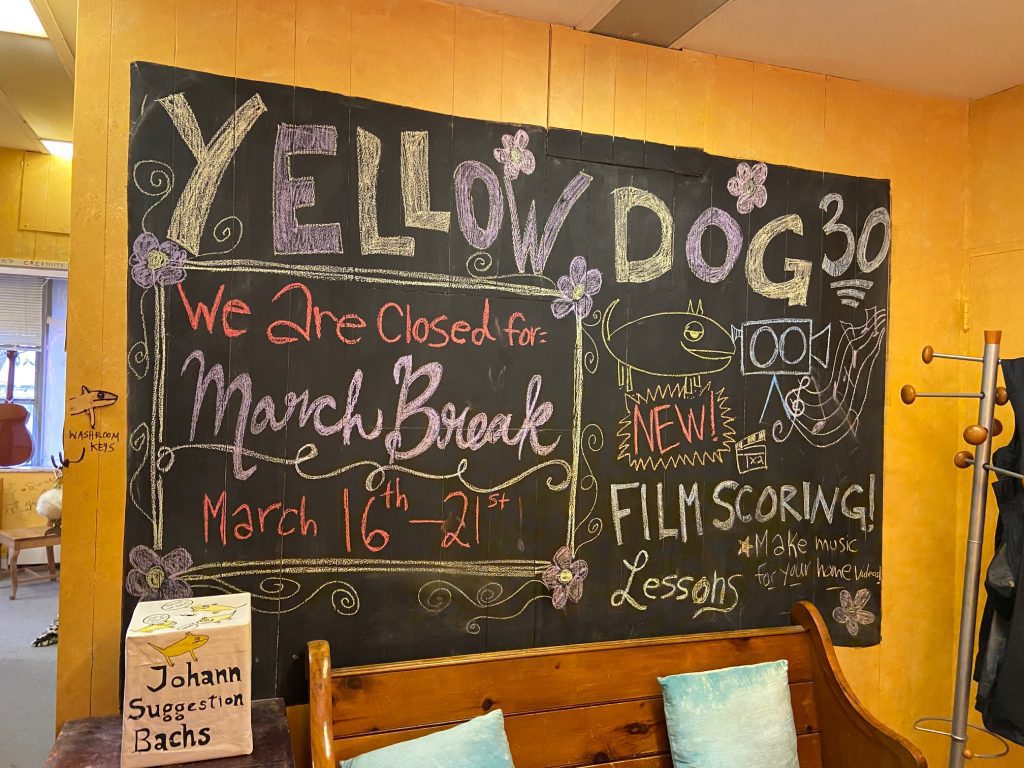 YELLOW DOG 30
We are Closed for:
March Break
March 16th – 21st
NEW!
FILM SCORING!
Lessons
Make music
for your home videos
WASHROOM
KEYS
Johann
Suggestion
Bachs